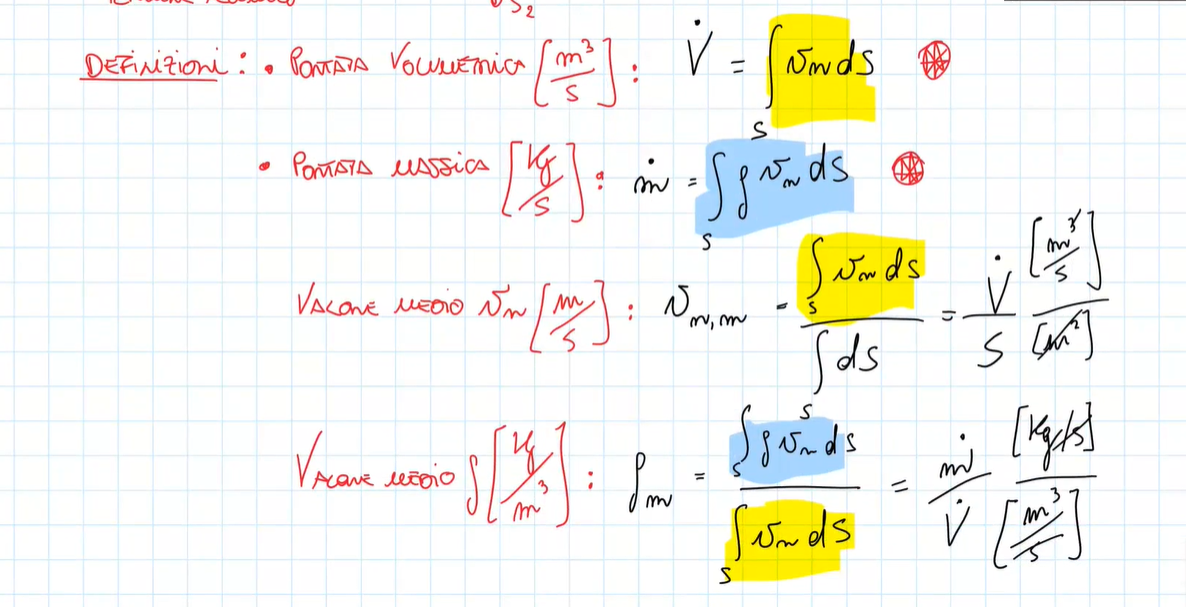 S₂
DEFINIZIONI: • PORTATA VOLUMETRICA [m³/s] : V̇ = ∫_S v_n dS
• PORTATA MASSICA [kg/s] : ṁ = ∫_S ρ v_n dS
VALORE MEDIO v_n [m/s] : v_n,m = ∫_S v_n dS / ∫_S dS = V̇/S [m³/s]/[m²]
VALORE MEDIO ρ [kg/m³] : ρ_m = ∫_S ρ v_n dS / ∫_S v_n dS = ṁ/V̇ [kg/s]/[m³/s]